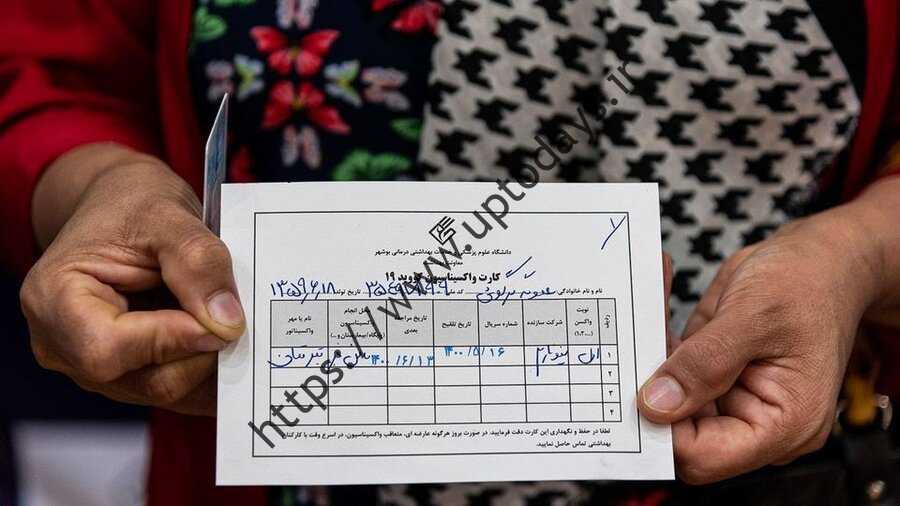 دانشگاه علوم پزشکی و خدمات بهداشتی درمانی بوشهر
معاونت
کارت واکسیناسیون کووید ۱۹
نام و نام خانوادگی کد ملی تاریخ تولد ۱۳۵۹/۶/۱۸
ردیف نوبت واکسن (۱،۲...) شرکت سازنده شماره سریال تاریخ تلقیح تاریخ مراجعه بعدی محل انجام واکسیناسیون (پایگاه/بیمارستان و ...) نام یا مهر واکسیناتور
۱ اول ۱۴۰۰/۵/۱۶ ۱۴۰۰/۶/۱۳
۲
۳
۴
لطفا در حفظ و نگهداری این کارت دقت فرمایید. در صورت بروز هرگونه عارضه ای، متعاقب واکسیناسیون، در اسرع وقت با کارکنان
بهداشتی تماس حاصل نمایید.
https://www.uptodays.ir